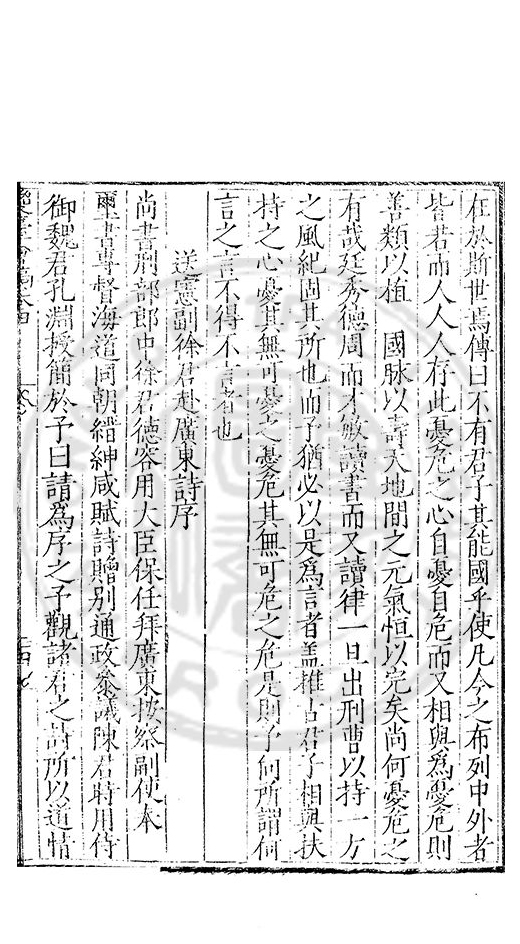 在於斯世焉傳曰不有君子其能國乎使凡今之布列中外者
皆若而人人人存此憂危之心自憂自危而又相與爲憂危則
善類以植 國脉以壽天地間之元氣恒以完矣尚何憂危之
有哉廷秀德周而才敏讀書而又讀律一旦出刑曹以持一方
之風紀固其所也而予猶必以是爲言者盖推古君子相與扶
持之心憂其無可憂之憂危其無可危之危是則予何所謂何
言之言不得不言者也
送憲副徐君赴廣東詩序
尚書刑部郎中徐君德容用大臣保任拜廣東按察副使奉
璽書專督海道同朝縉紳咸賦詩贈别通政叅議陳君時用侍
御魏君孔淵授簡於予曰請爲序之予觀諸君之詩所以道情